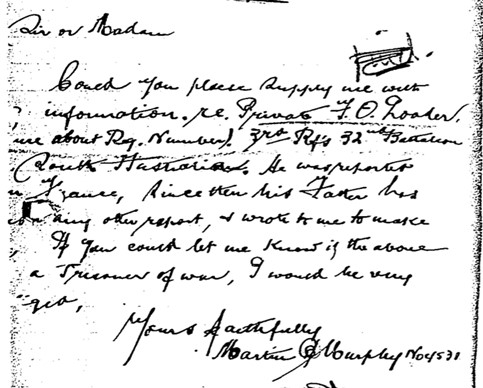 Sir or Madam
Could you please supply me with
information. re. Private F. O.
me about Reg. Number). 3rd Rfs 32nd Battalion
(South Australian. He was reported
n France, Since then his Father has
any other report, & wrote to me to make
If you could let me know if the above
a Prisoner of war, I would be very
Yours faithfully
Martin Murphy No 4531